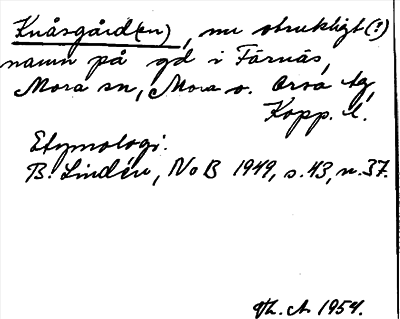 Knåsgård(en), nu obrukligt(?)
namn på gd i Färnäs,
Mora sn, Mora o. Orsa tg,
Kopp. l.
Etymologi:
B. Lindén, NoB 1949, s. 43, n. 37.
1954.